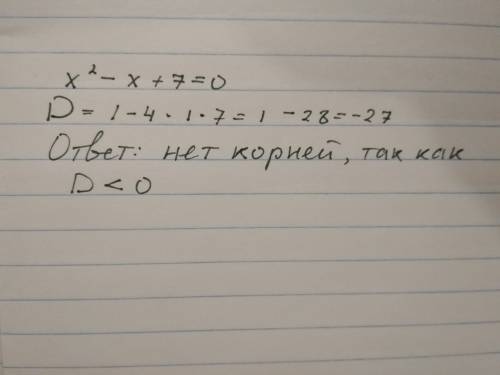 x² - x + 7 = 0
D = 1 - 4 · 1 · 7 = 1 - 28 = -27
Ответ: нет корней, так как
D < 0